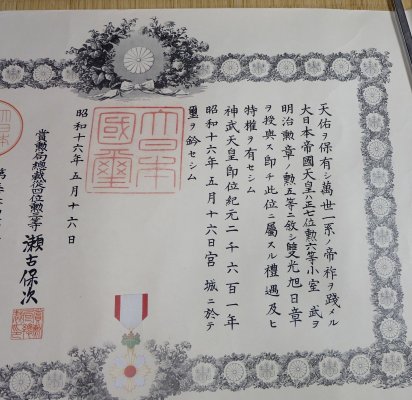 天佑ヲ保有シ萬世一系ノ帝祚ヲ踐メル
大日本帝國天皇ハ正七位勲六等小室武ヲ
明治勲章ノ勲五等ニ敘シ雙光旭日章
ヲ授與ス即チ此位ニ屬スル禮遇及ヒ
特權ヲ有セシム
神武天皇即位紀元二千六百一年
昭和十六年五月十六日宮城ニ於テ
璽ヲ鈐セシム
大日本
國璽
昭和十六年五月十六日
賞勲局總裁從四位勲等瀬古保次